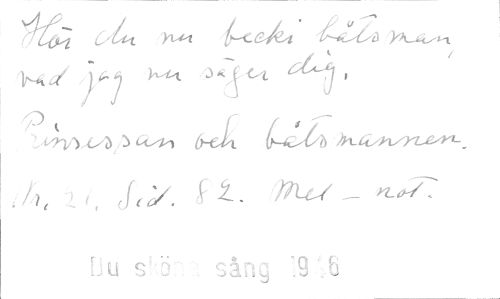 Hör du nu becki båtsman,
vad jag nu säger dig.
Prinsessan och båtsmannen.
Nr. 21. Sid. 82. Mel - not.
Du sköna sång 1946